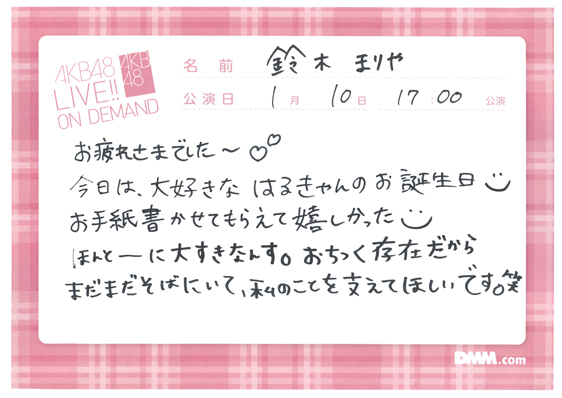 AKB48
LIVE!!
ON DEMAND
AKB
48
名前 鈴木 まりや
公演日 1月 10日 17:00 公演
お疲れさまでした〜♡♡
今日は、大好きな はるきゃんのお誕生日
お手紙書かせてもらえて嬉しかった
ほんとーに大すきなんす。おちつく存在だから
まだまだそばにいて、私のことを支えてほしいです。笑
DMM.com